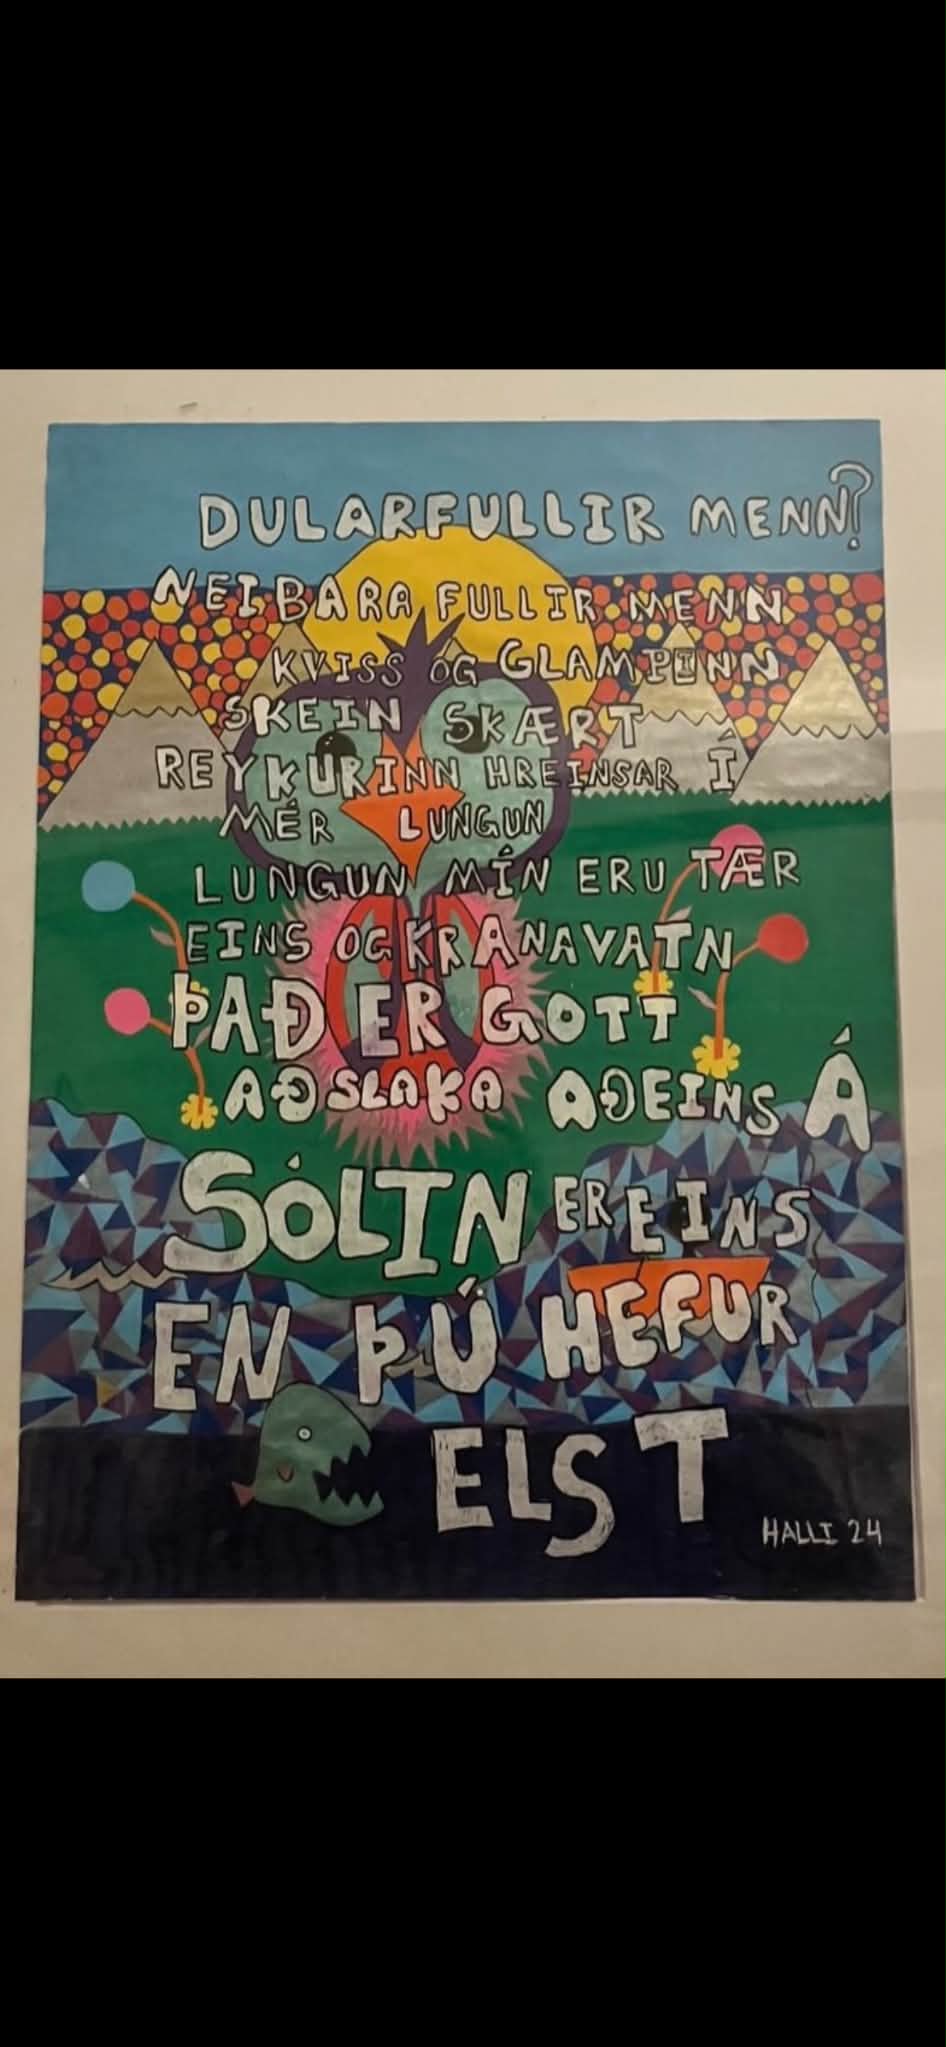 DULARFULLIR MENN?
NEI BARA FULLIR MENN
KVISS OG GLAMPINN
SKEIN SKÆRT
REYKURINN HREINSAR Í
MÉR LUNGUN
LUNGUN MÍN ERU TÆR
EINS OG KRANAVATN
ÞAÐ ER GOTT
AÐ SLAKA AÐEINS Á
SÓLIN ER EINS
EN ÞÚ HEFUR
ELST
HALLI 24